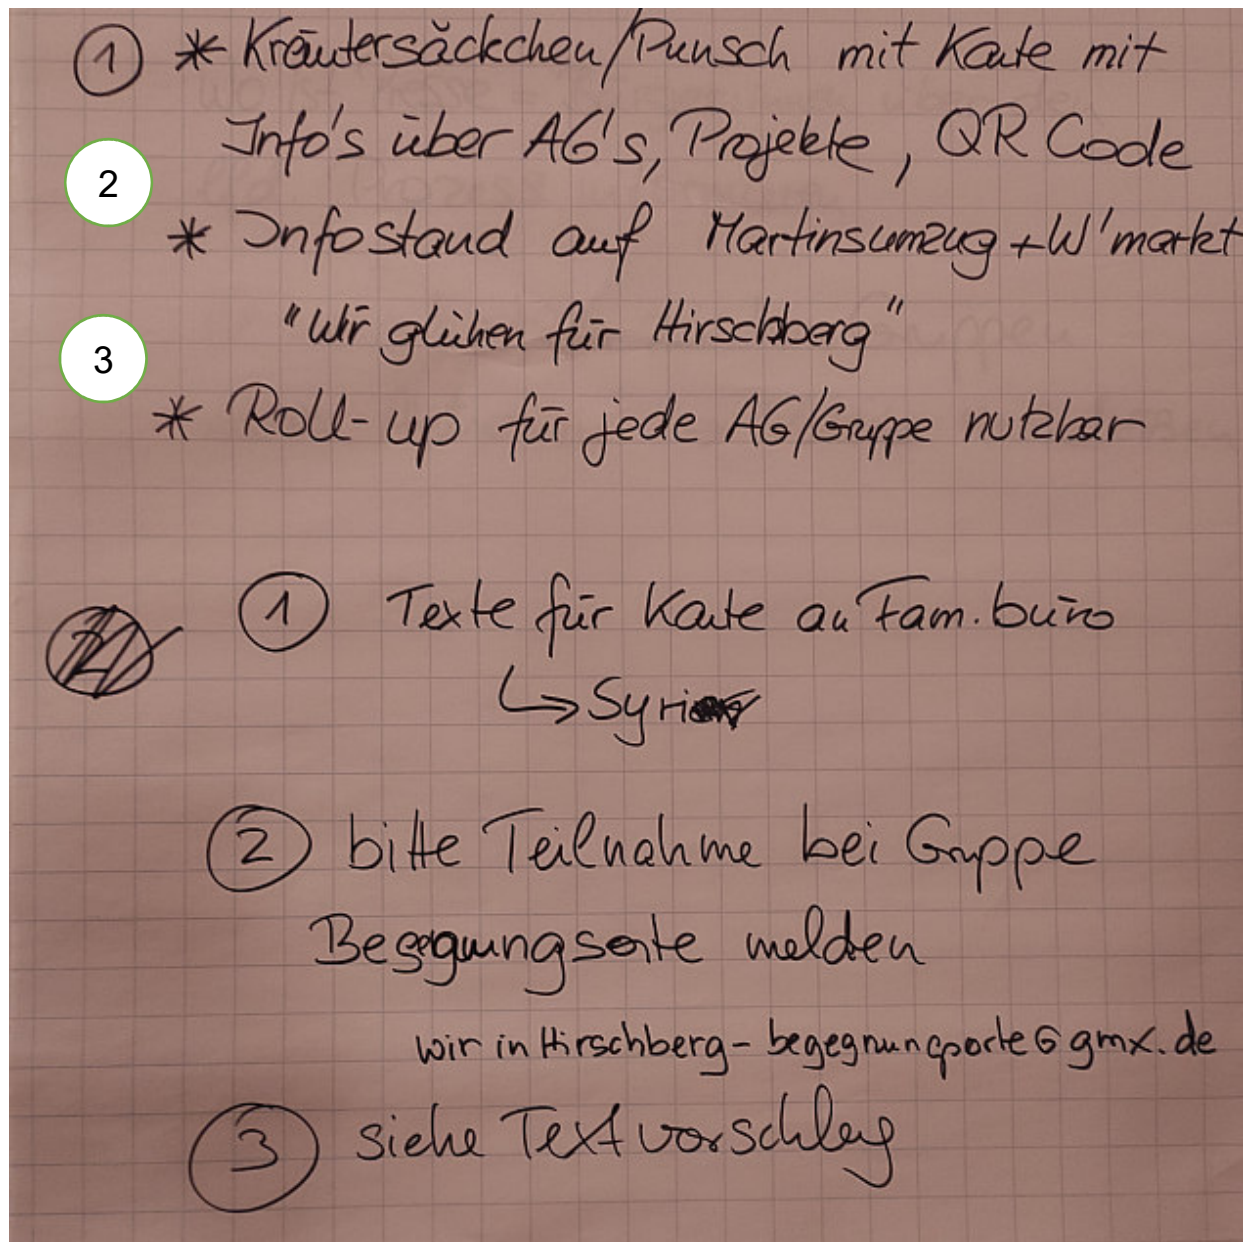 ① * Kräutersäckchen/Punsch mit Karte mit
Info's über AG's, Projekte, QR Code
2
* Infostand auf Martinsumzug + W'markt
"Wir glühen für Hirschberg"
3
* Roll-up für jede AG/Gruppe nutzbar
① Texte für Karte an Fam.büro
↳ Syri
② bitte Teilnahme bei Gruppe
Begegnungsorte melden
wir in Hirschberg - begegnungsorte@gmx.de
③ siehe Textvorschlag